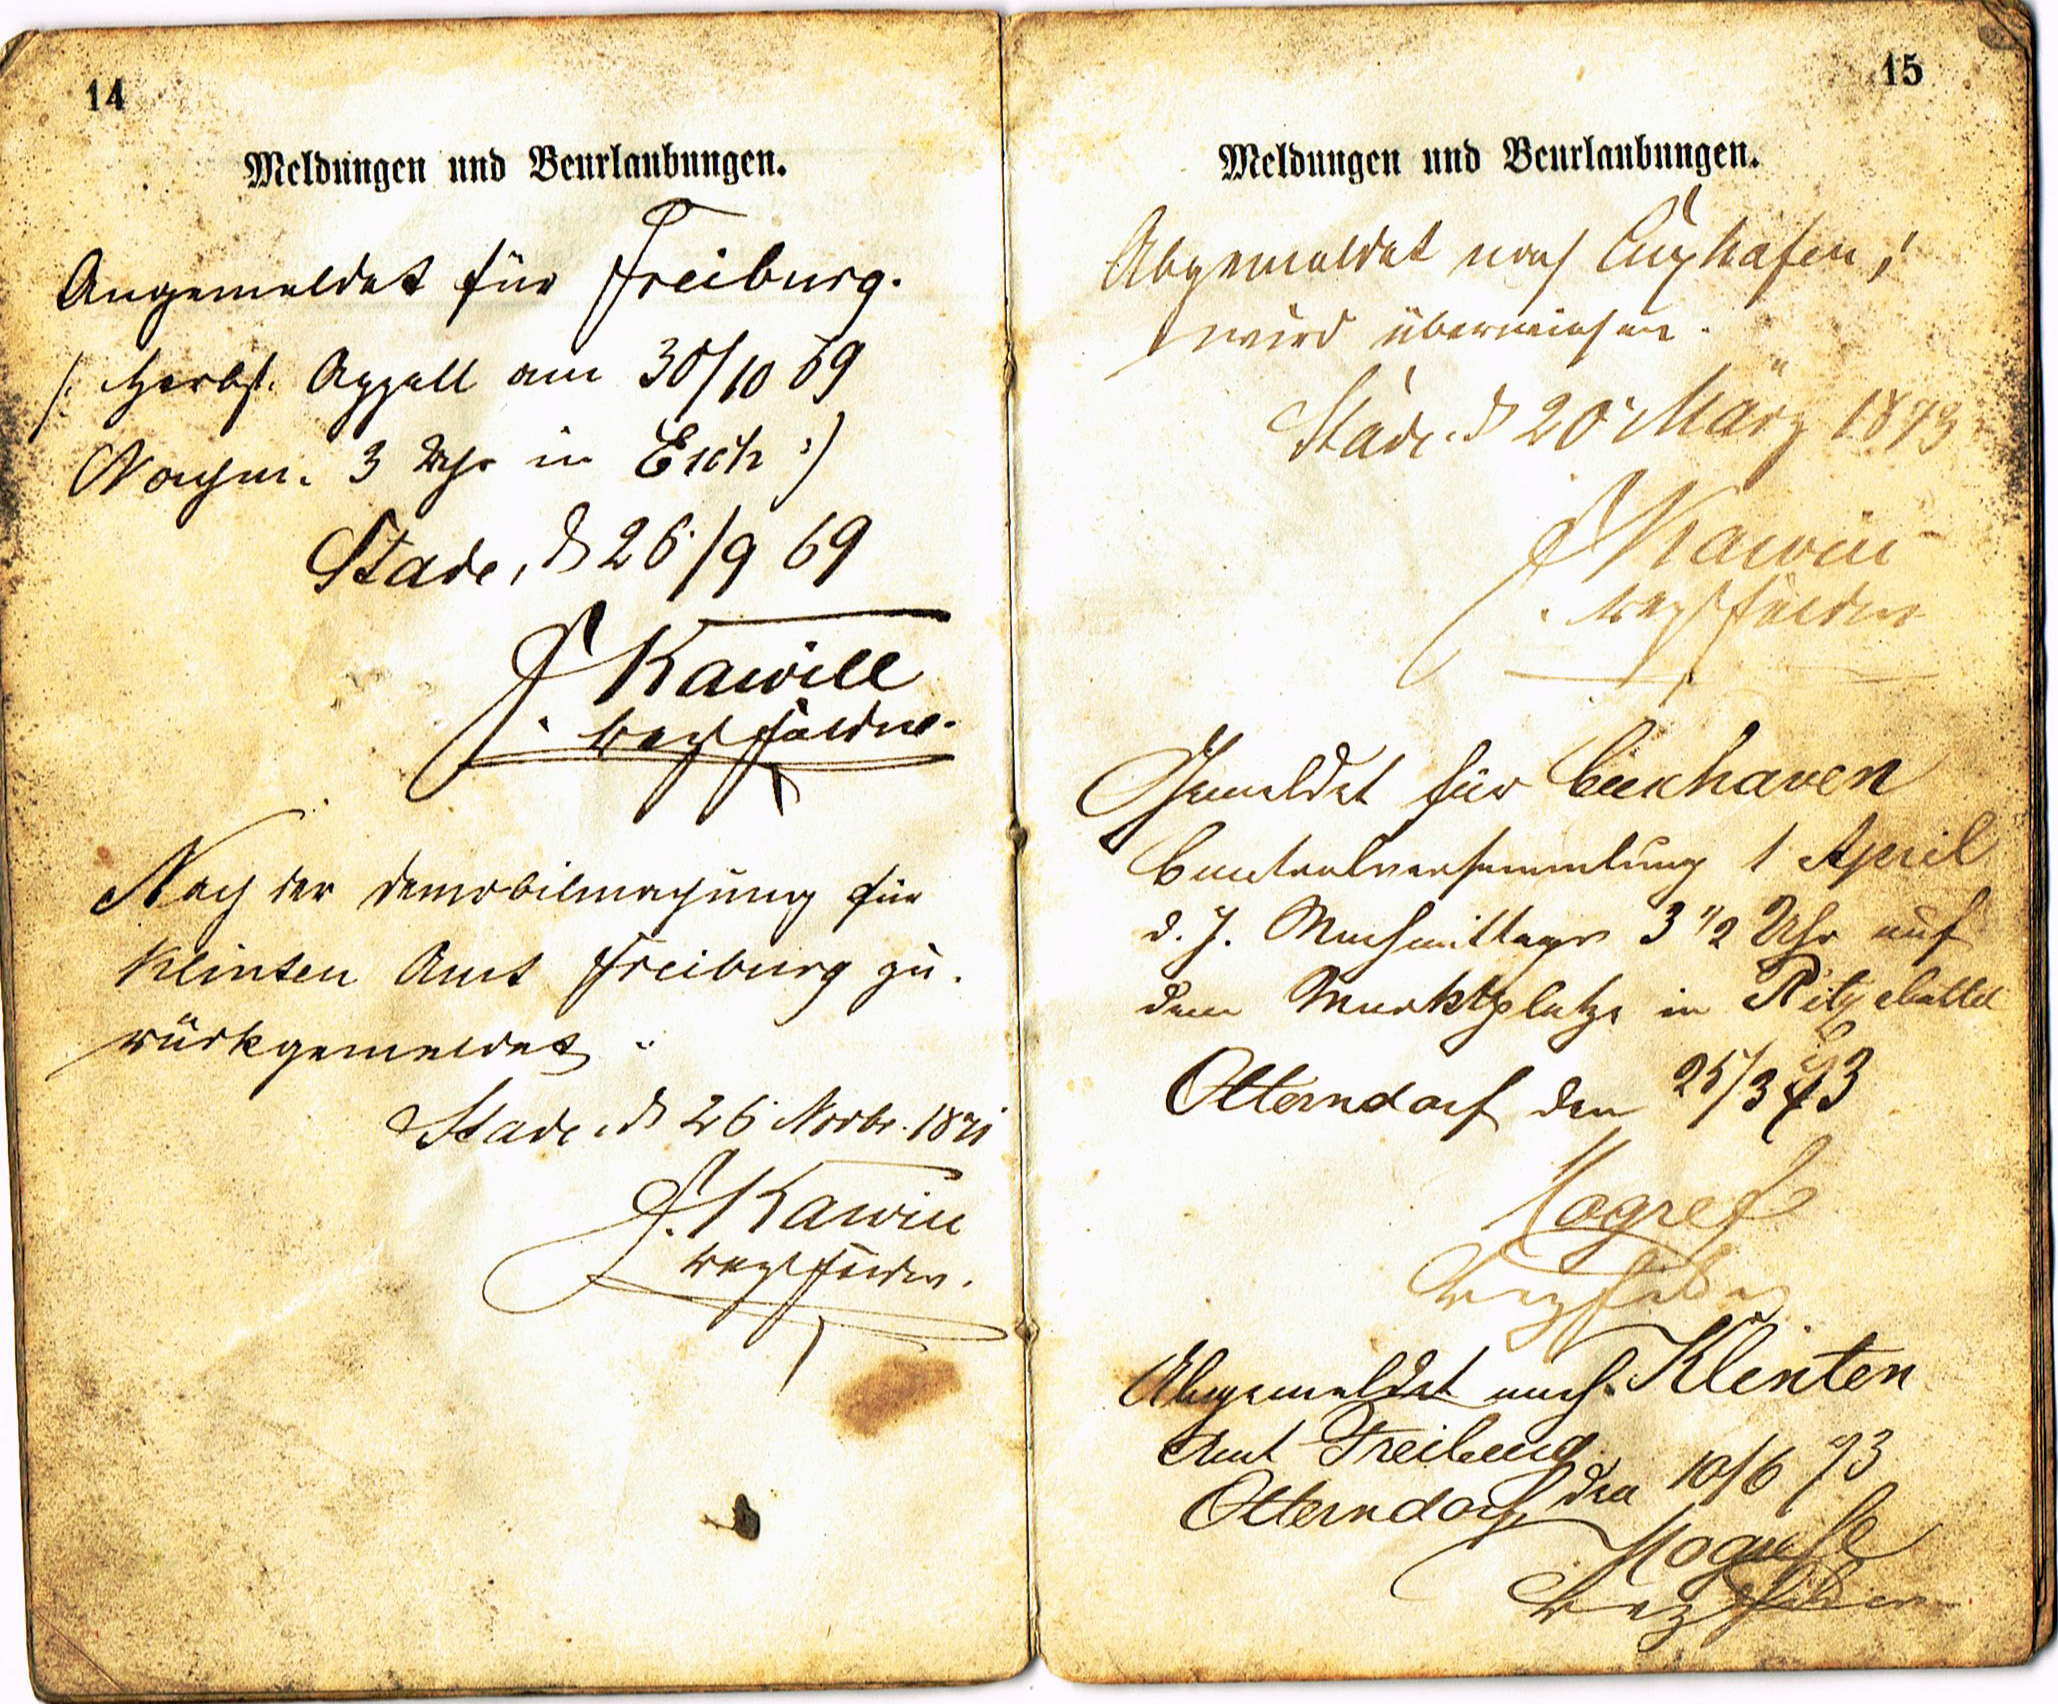 14
Meldungen und Beurlaubungen.
Angemeldet für Freiburg.
/: Herbst Appell am 30/10 69
Nachm. 3 Uhr in Esch :/
Stade, d 26/9 69
Kawill
Bez. Feldw.
Nach der Demobilmachung für
Klinten Amt Freiburg zu-
rückgemeldet.
Stade, d 26 Novbr. 1871
Kawill
Bez. Feldw.
15
Meldungen und Beurlaubungen.
Abgemeldet nach Cuxhafen,
wird überwiesen.
Stade, d 20 März 1873
Kawill
Bez. Feldw.
Gemeldet für Cuxhaven
Controlversammlung 1 April
d. J. Nachmittags 3 1/2 Uhr auf
dem Marktplatze in Ritzebüttel
Otterndorf den 25/3 73
Mogrefe
Bez. Feldw.
Abgemeldet nach Klinten
Amt Freiburg
Otterndorf den 10/6 73
Mogrefe
Bez. Feldw.